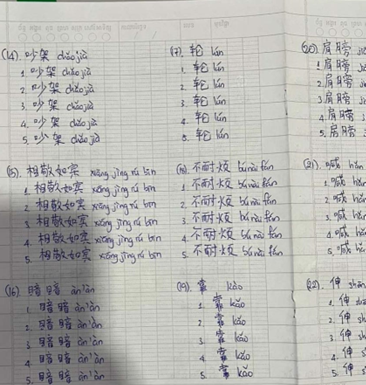 (14) 吵架 chǎo jià
1. 吵架 chǎo jià
2. 吵架 chǎo jià
3. 吵架 chǎo jià
4. 吵架 chǎo jià
5. 吵架 chǎo jià
(15) 相敬如宾 xiāng jìng rú bīn
1. 相敬如宾 xiāng jìng rú bīn
2. 相敬如宾 xiāng jìng rú bīn
3. 相敬如宾 xiāng jìng rú bīn
4. 相敬如宾 xiāng jìng rú bīn
5. 相敬如宾 xiāng jìng rú bīn
(16) 暗暗 àn'àn
1. 暗暗 àn'àn
2. 暗暗 àn'àn
3. 暗暗 àn'àn
4. 暗暗 àn'àn
5. 暗暗 àn'àn
(17) 轮 lún
1. 轮 lún
2. 轮 lún
3. 轮 lún
4. 轮 lún
5. 轮 lún
(18) 不耐烦 bú nài fán
1. 不耐烦 bú nài fán
2. 不耐烦 bú nài fán
3. 不耐烦 bú nài fán
4. 不耐烦 bú nài fán
5. 不耐烦 bú nài fán
(19) 靠 kào
1. 靠 kǎo
2. 靠 kǎo
3. 靠 kǎo
4. 靠 kǎo
5. 靠 kǎo
(20) 肩膀
1. 肩膀
2. 肩膀
3. 肩膀
4. 肩膀
5. 肩膀
(21) 喊
1. 喊
2. 喊
3. 喊
4. 喊
5. 喊
(22) 伸
1. 伸
2. 伸
3. 伸
4. 伸
5. 伸